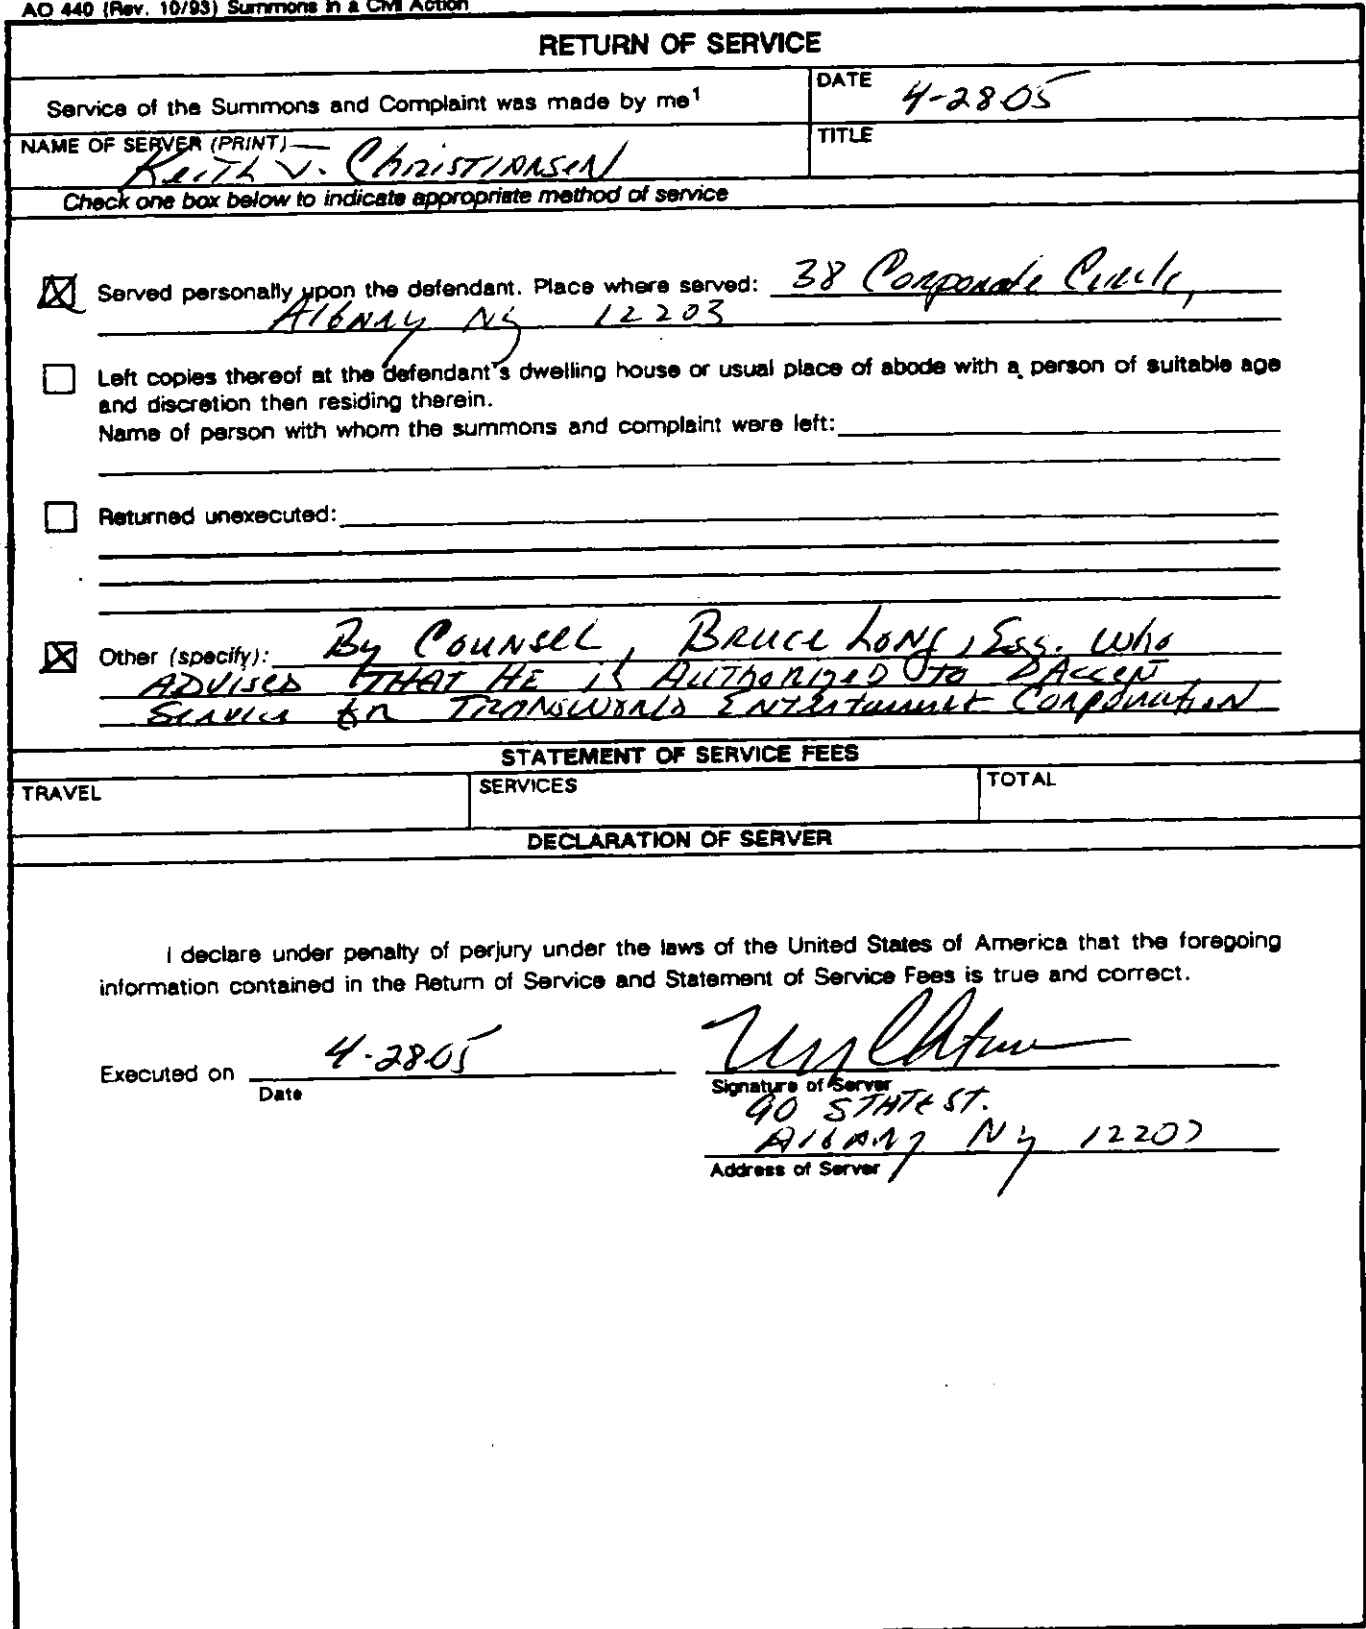 AO 440 (Rev. 10/93) Summons in a Civil Action
RETURN OF SERVICE
Service of the Summons and Complaint was made by me1
DATE 4-28-05
NAME OF SERVER (PRINT)
Keith V. Christiansen
TITLE
Check one box below to indicate appropriate method of service
Served personally upon the defendant. Place where served: 38 Corporate Circle,
Albany NY 12203
Left copies thereof at the defendant's dwelling house or usual place of abode with a person of suitable age
and discretion then residing therein.
Name of person with whom the summons and complaint were left:
Returned unexecuted:
Other (specify): By Counsel, Bruce Long, Esq. who
ADVISES THAT HE is Authorized to Accept
Service for Transworld Entertainment Corporation
STATEMENT OF SERVICE FEES
TRAVEL
SERVICES
TOTAL
DECLARATION OF SERVER
I declare under penalty of perjury under the laws of the United States of America that the foregoing
information contained in the Return of Service and Statement of Service Fees is true and correct.
Executed on 4-28-05
Date
Signature of Server
90 STATE ST.
Albany NY 12207
Address of Server